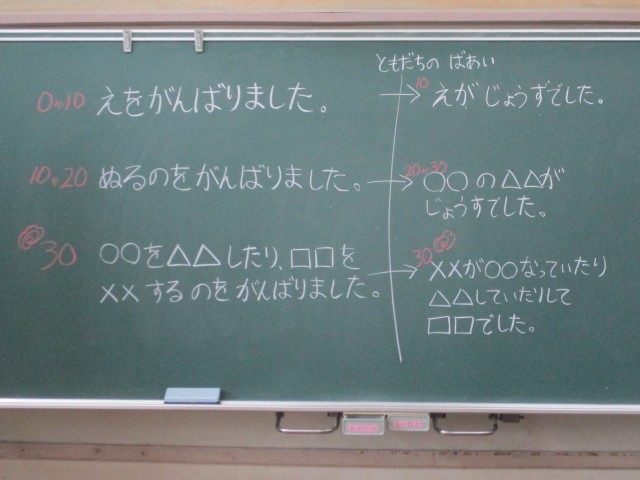 ともだちの ばあい
0〜10 えをがんばりました。
10 えが じょうずでした。
10〜20 ぬるのをがんばりました。
20〜30 ○○の△△が
じょうずでした。
@30 ○○を△△したり、□□を
××するのをがんばりました。
30@ ××が○○なっていたり
△△していたりして
□□でした。